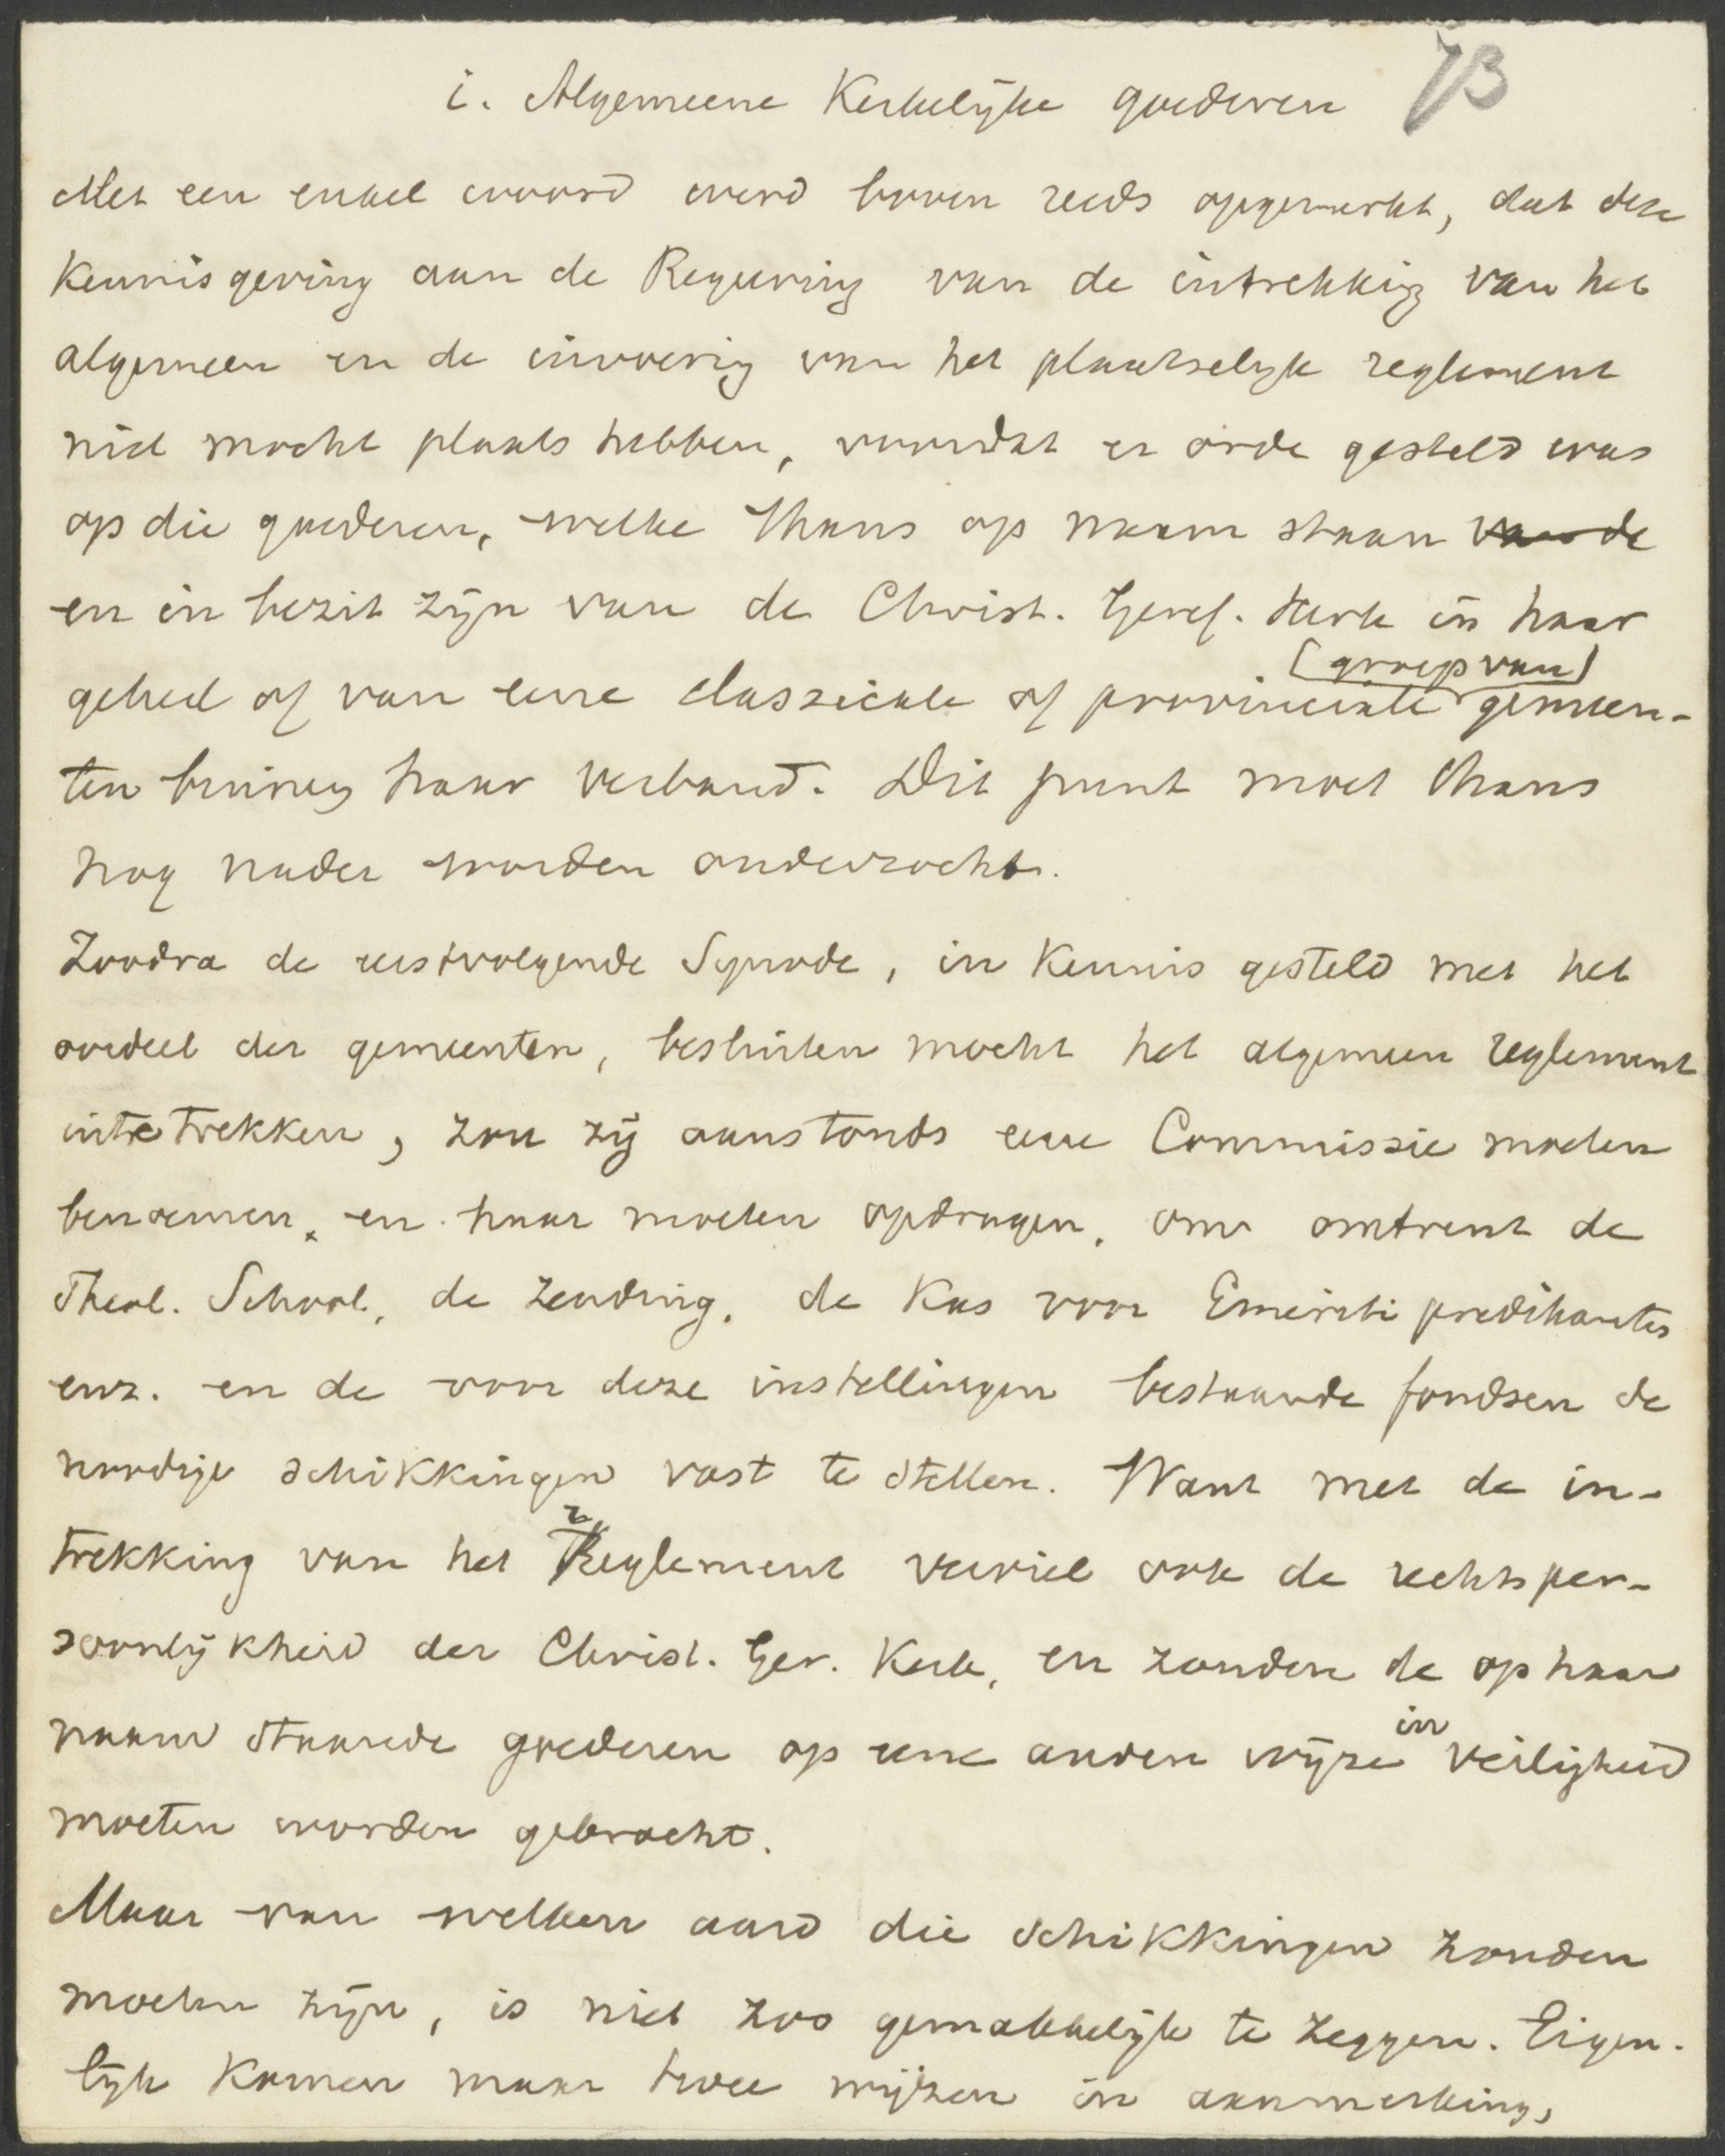 i. Algemeene Kerkelijke goederen 73
Met een enkel woord werd boven reeds opgemerkt, dat deze
Kennisgeving aan de Regeering van de intrekking van het
algemeen en de invoering van het plaatselijk reglement
niet mocht plaats hebben, voordat er orde gesteld was
op die goederen, welke thans op naam staan van de
en in bezit zijn van de Christ. Geref. Kerk in haar
(groep van)
geheel of van eene classicale of provinciale gemeen-
ten binnen haar verband. Dit punt moet thans
nog nader worden onderzocht.
Zoodra de eerstvolgende Synode, in Kennis gesteld met het
oordeel der gemeenten, besluiten mocht het algemeen reglement
inte trekken, zou zij aanstonds eene Commissie moeten
benoemen, en haar moeten opdragen, om omtrent de
Theol. School, de Zending, de Kas voor Emeriti predikanten
enz. en de voor deze instellingen bestaande fondsen de
noodige schikkingen vast te stellen. Want met de in-
trekking van het Reglement verviel ook de rechtsper-
soonlijkheid der Christ. Ger. Kerk, en zouden de op haar
in
naam staande goederen op eene andere wijze veiligheid
moeten worden gebracht.
Maar van welken aard die schikkingen zouden
moeten zijn, is niet zoo gemakkelijk te zeggen. Eigen-
lijk Komen maar twee wijzen in aanmerking,